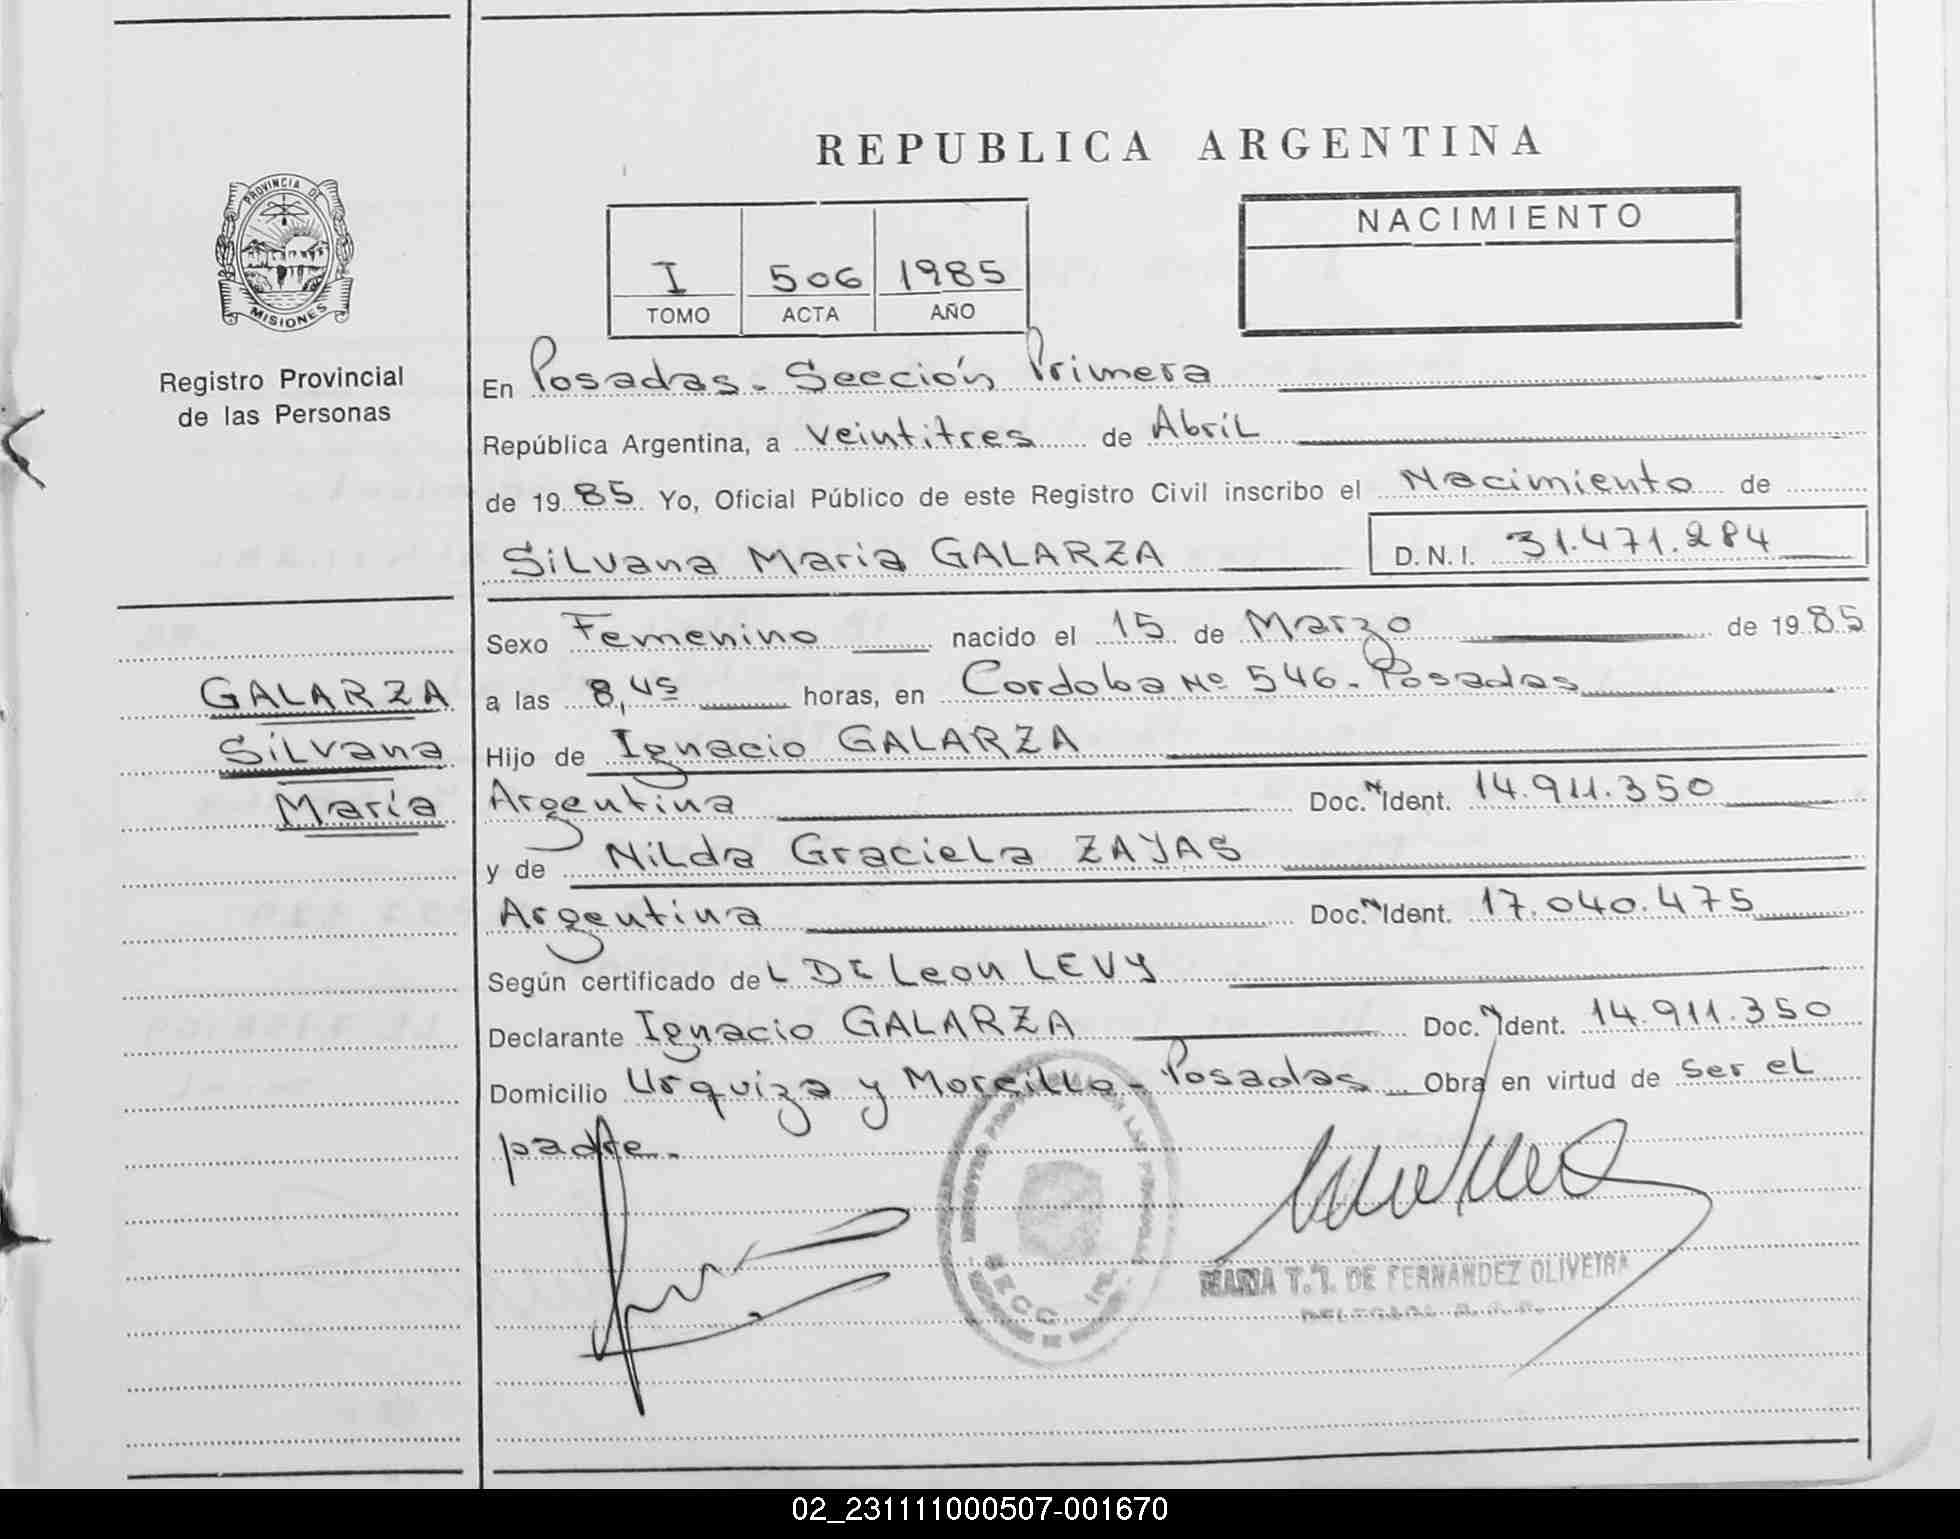 REPUBLICA ARGENTINA
PROVINCIA DE
MISIONES
Registro Provincial
de las Personas
I 506 1985
TOMO ACTA AÑO
NACIMIENTO
En Posadas - Sección Primera
República Argentina, a veintitres de Abril
de 1985 Yo, Oficial Público de este Registro Civil inscribo el Nacimiento de
Silvana Maria GALARZA D.N.I. 31.471.284
Sexo Femenino nacido el 15 de Marzo de 1985
GALARZA
Silvana
María
a las 8,45 horas, en Cordoba Nº 546 - Posadas
Hijo de Ignacio GALARZA
Argentina Doc. N Ident. 14.911.350
y de Nilda Graciela ZAYAS
Argentina Doc. N Ident. 17.040.475
Según certificado del Dr Leon LEVY
Declarante Ignacio GALARZA Doc. N Ident. 14.911.350
Domicilio Urquiza y Morcillo - Posadas Obra en virtud de ser el
padre.
SECC.
MARIA T. I. DE FERNANDEZ OLIVEIRA
02_231111000507-001670